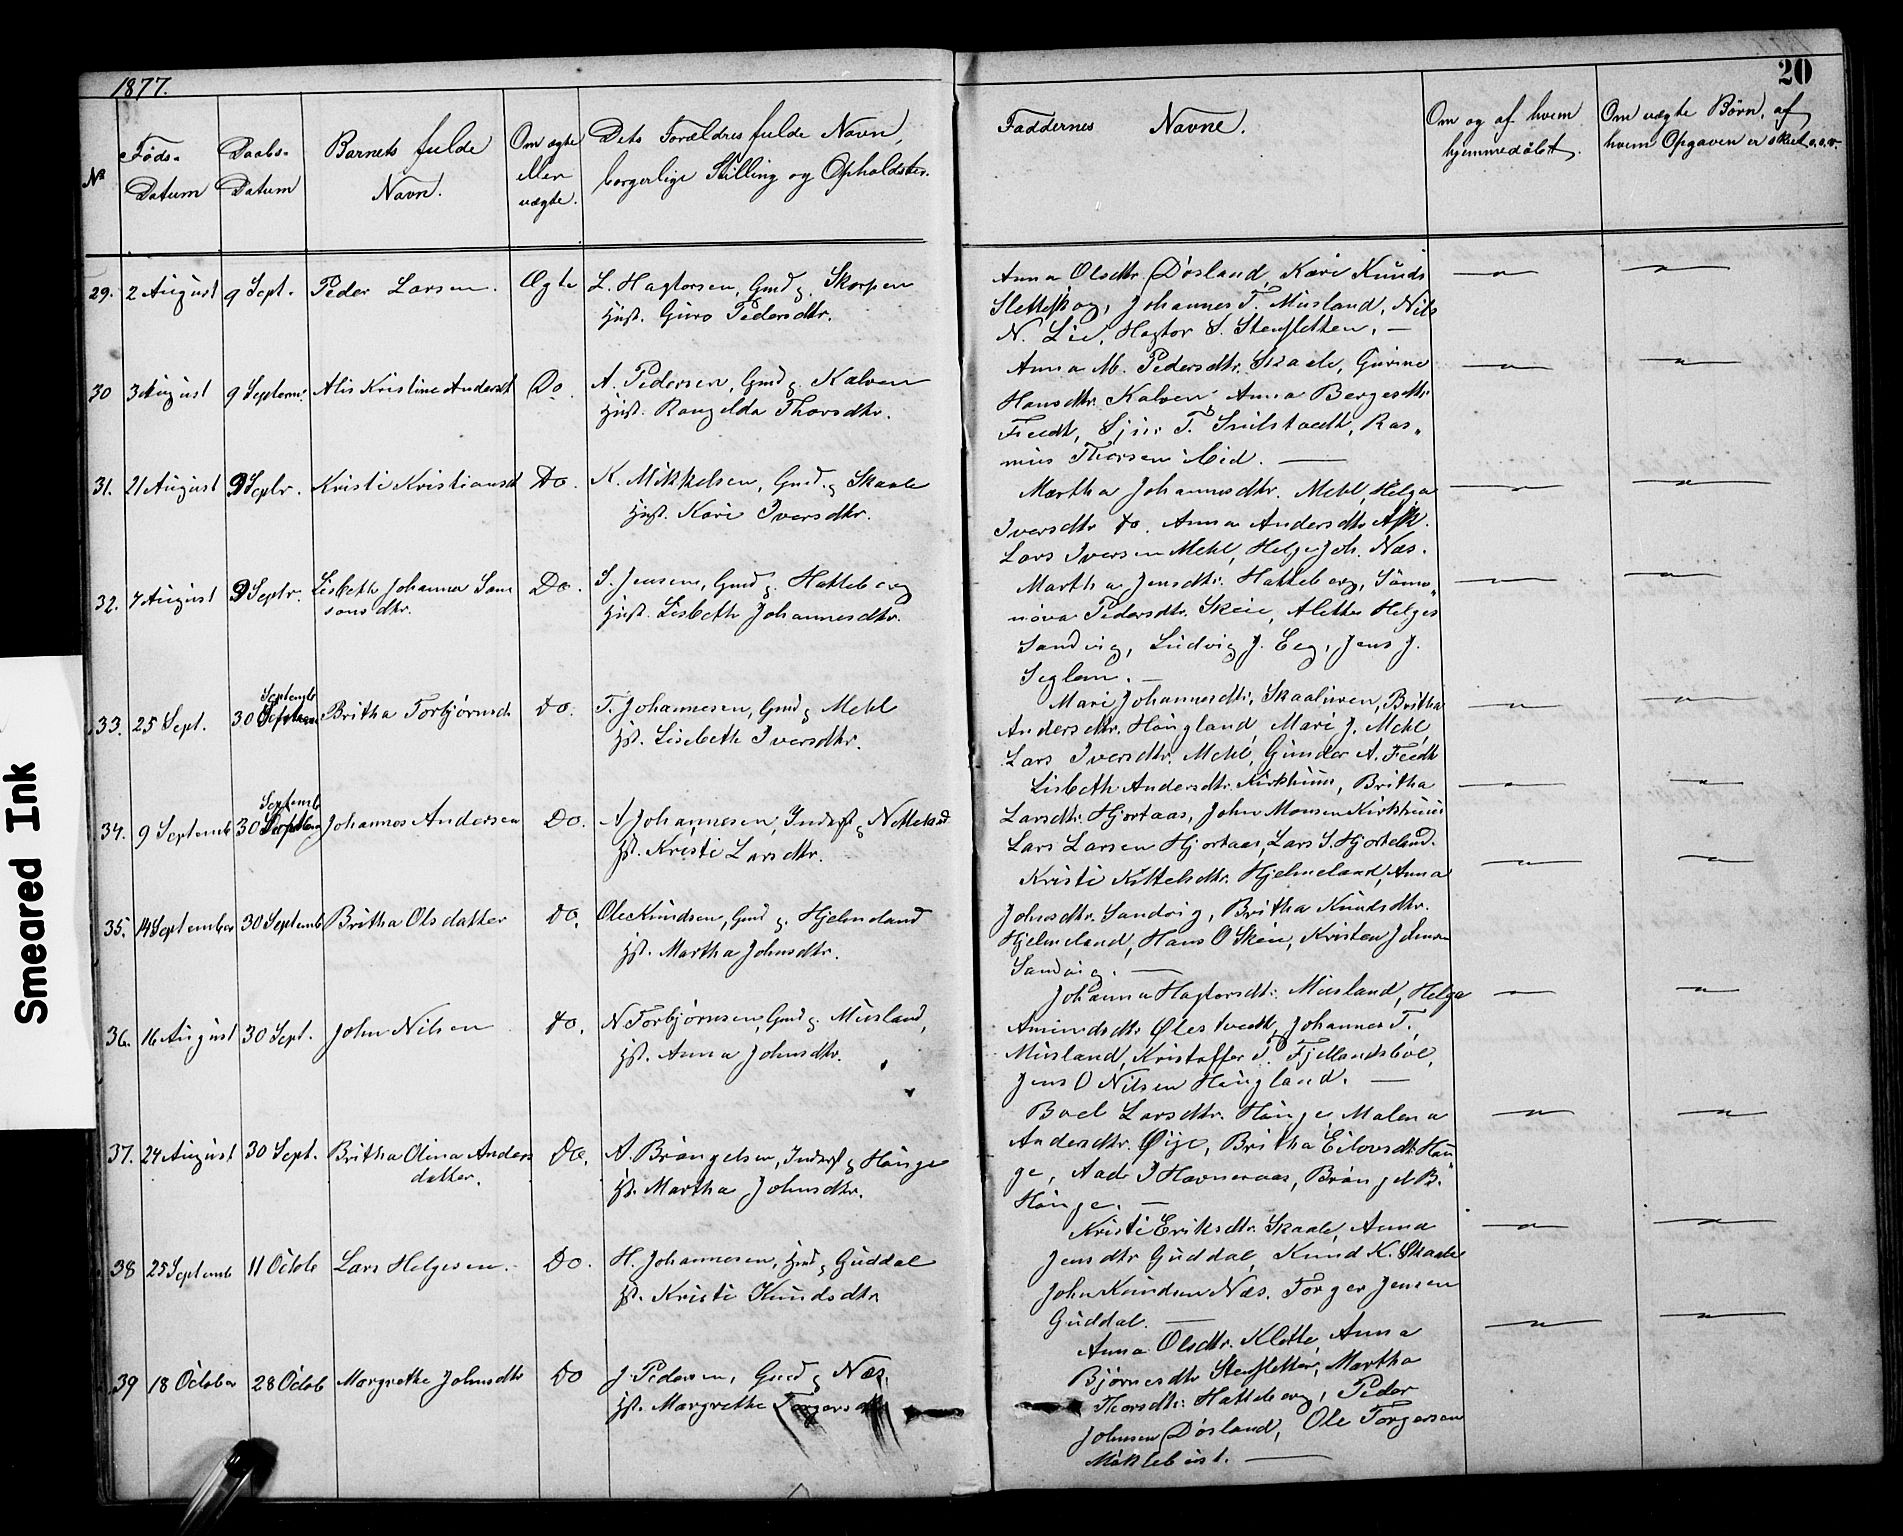 1877.
20
Smeared Ink
No
Føds-
Datum
Daabs-
Datum
Barnets fulde
Navn.
Om ægte
eller
uægte.
Dets Forældres fulde Navn,
borgerlige Stilling og Opholdsted.
Faddernes Navne.
Om og af hvem
hjemmedøbt
Om uægte Børn, af
hvem Opgaven er skeet o.s.v.
29. 2 August 9 Sept. Peder Larsen. Ægte L. Hagtorsen, Gmd Skorpen
Hust. Guro Pedersdtr.
Anna Olsdtr. Døsland, Kari Knuds
Slettskog, Johannes T. Musland, Nils
N. Lie, Hagtor S. Stensletten. —
30 3 August 9 Septem. Alis Kristine Andersdt Do. A. Pedersen, Gmd Kalven
Hust. Rangelda Thorsdtr.
Anna M. Pedersdtr. Skaale, Gurine
Hansdtr. Kalven, Anna Bergesdtr.
Tvedt, Sjur T. Ras-
mus Thorsen Eid. —
31. 21 August 9 Septr. Kristi Kristiansdt Do. K. Mikkelsen, Gmd. Skaale
Hust. Kari Iversdtr.
Martha Johannesdtr. Mehl, Helga
Iversdtr do. Anna Andersdtr Ask.
Lars Iversen Mehl, Helge Joh. Næs.
32. 7 August 9 Septr. Lisbeth Johanna Sam
sonsdtr. Do. S. Jensen, Gmd Hatteberg
Hust. Lisbeth Johannesdtr.
Martha Jensdtr. Hatteberg, Søn-
nøva Pedersdtr. Skeie, Alette Helges
Sandvig, Ludvig J. Eeg, Jens J.
Seglem. —
33. 25 Sept. 30 Septemb Britha Torbjørnsd. do. T. Johannesen, Gmd Mehl
Hst. Lisbeth Iversdtr.
Mari Johannesdtr. Skaaluren, Britha
Andersdtr. Haugland, Mari J. Mehl,
Lars Iversdtr. Mehl, Gunder A. Tvedt
34. 9 Septemb 30 Septemb Johannes Andersen Do. A Johannesen, Inderst Netteland
Hst. Kristi Larsdtr.
Lisbeth Andersdtr. Kirkhuus, Britha
Larsdtr. Hjortaas, John Monsen Kirkhuus
Lars Larsen Hjortaas, Lars S. Hjorteland.
35. 14 September 30 Septemb Britha Olsdatter do. Ole Knudsen, Gmd Hjelmeland
Hst. Martha Johnsdtr.
Kristi Kittelsdtr. Hjelmeland, Anna
Johnsdtr. Sandvig, Britha Knudsdtr.
Hjelmeland, Hans O Skeie, Kristen Johnsen
Sandvig. —
36. 16 August 30 Sept. John Nilsen do. N Torbjørnsen, Gmd Musland,
Hst. Anna Johnsdtr.
Johanna Hagtorsdtr. Musland, Helga
Amundsdtr Ølestvedt, Johannes T.
Musland, Kristoffer T. Fjellandsbøe,
Jens O Nilsen Haugland. —
37. 24 August 30 Sept. Britha Olina Anders
datter. Do. A. Brøngelsen, Inderst Hauge
Hst. Martha Johnsdtr.
Boel Larsdtr. Hauge, Malena
Andersdtr. Øije, Britha Eilovsdtr. Hau-
ge, Aade I Havneraas, Brøngel B.
Hauge. —
38 25 Septemb 11 Octob Lars Helgesen. Do. H. Johannesen, Gmd Guddal
Hst. Kristi Knudsdtr.
Kristi Eriksdtr. Skaale, Anna
Jensdtr Guddal, Knud K. Skaale
John Knudsen Næs. Torger Jensen
Guddal. —
39 18 October 28 Octob Margrethe Johnsdtr Do J. Pedersen, Gmd Næs.
Hst. Margrethe Torgersdtr
Anna Olsdtr. Klette, Anna
Bjørnesdtr Stensletten, Martha
Thorsdtr. Hatteberg, Peder
Johnsen Døsland, Ole Torgersen
Møklebust. —